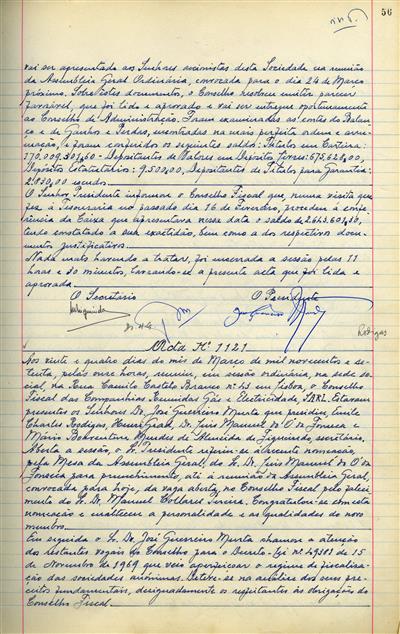 56
vai ser apresentada aos Senhores accionistas desta Sociedade na reunião
da Assembleia Geral Ordinária, convocada para o dia 24 de Março
próximo. Sobre estes documentos, o Conselho resolveu emitir parecer
favorável, que foi lido e aprovado e vai ser entregue oportunamente
ao Conselho de Administração. Foram examinadas as contes do Balan-
ço e de Ganhos e Perdas, encontradas na mais perfeita ordem e arru-
mação, e foram conferidos os seguintes saldos: Títulos em Carteira:
170.009.307,60 - Depositantes de Valores em Depósito Livres: 675.628,00,
Depósitos Estatutários: 9.500,00, Depositantes de Títulos para Garantia:
2.050,00 escudos.
O Senhor Presidente informou o Conselho Fiscal que numa visita que
fez à Tesouraria no passado dia 16 de Fevereiro, procedeu à confe-
rência da Caixa que apresentava nessa data o saldo de 2.643.601,30,
tendo constatado a sua exactidão, bem como a dos respectivos docu-
mentos justificativos.
Nada mais havendo a tratar, foi encerrada a sessão pelas 11
horas e 30 minutos, lavrando-se a presente acta que foi lida e
aprovada.
O Secretário O Presidente
Rodrigas
Acta Nº 1121
Aos vinte e quatro dias do mês de Março de mil novecentos e se-
tenta, pelas onze horas, reuniu, em sessão ordinária, na sede so-
cial, na Rua Camilo Castelo Branco nº 43 em Lisboa, o Conselho
Fiscal das Companhias Reunidas Gás e Electricidade, SARL. Estavam
presentes os Senhores Dr. José Guerreiro Murta que presidiu, Emile
Charles Rodigas, Henri Grad, Dr. Luís Manuel do O' da Fonseca e
Mário Boaventura Mendes de Almeida de Figueiredo, secretário.
Aberta a sessão, o Sr. Presidente referiu-se à recente nomeação
pela Mesa da Assembleia Geral, do Sr. Dr. Luís Manuel do O' da
Fonseca para preenchimento, até à reunião da Assembleia Geral,
convocada para hoje, da vaga aberta no Conselho Fiscal pelo fale-
cimento do Sr. Dr. Manuel Collares Pereira. Congratulou-se com esta
nomeação e enalteceu a personalidade e as qualidades do novo
membro.
Em seguida o Sr. Dr. José Guerreiro Murta chamou a atenção
dos restantes vogais do Conselho para o Decreto-Lei nº 49381 de 15
de Novembro de 1969 que veio aperfeiçoar o regime de fiscaliza-
ção das sociedades anónimas. Deteve-se na análise dos seus pre-
ceitos fundamentais, designadamente os respeitantes às obrigações do
Conselho Fiscal.